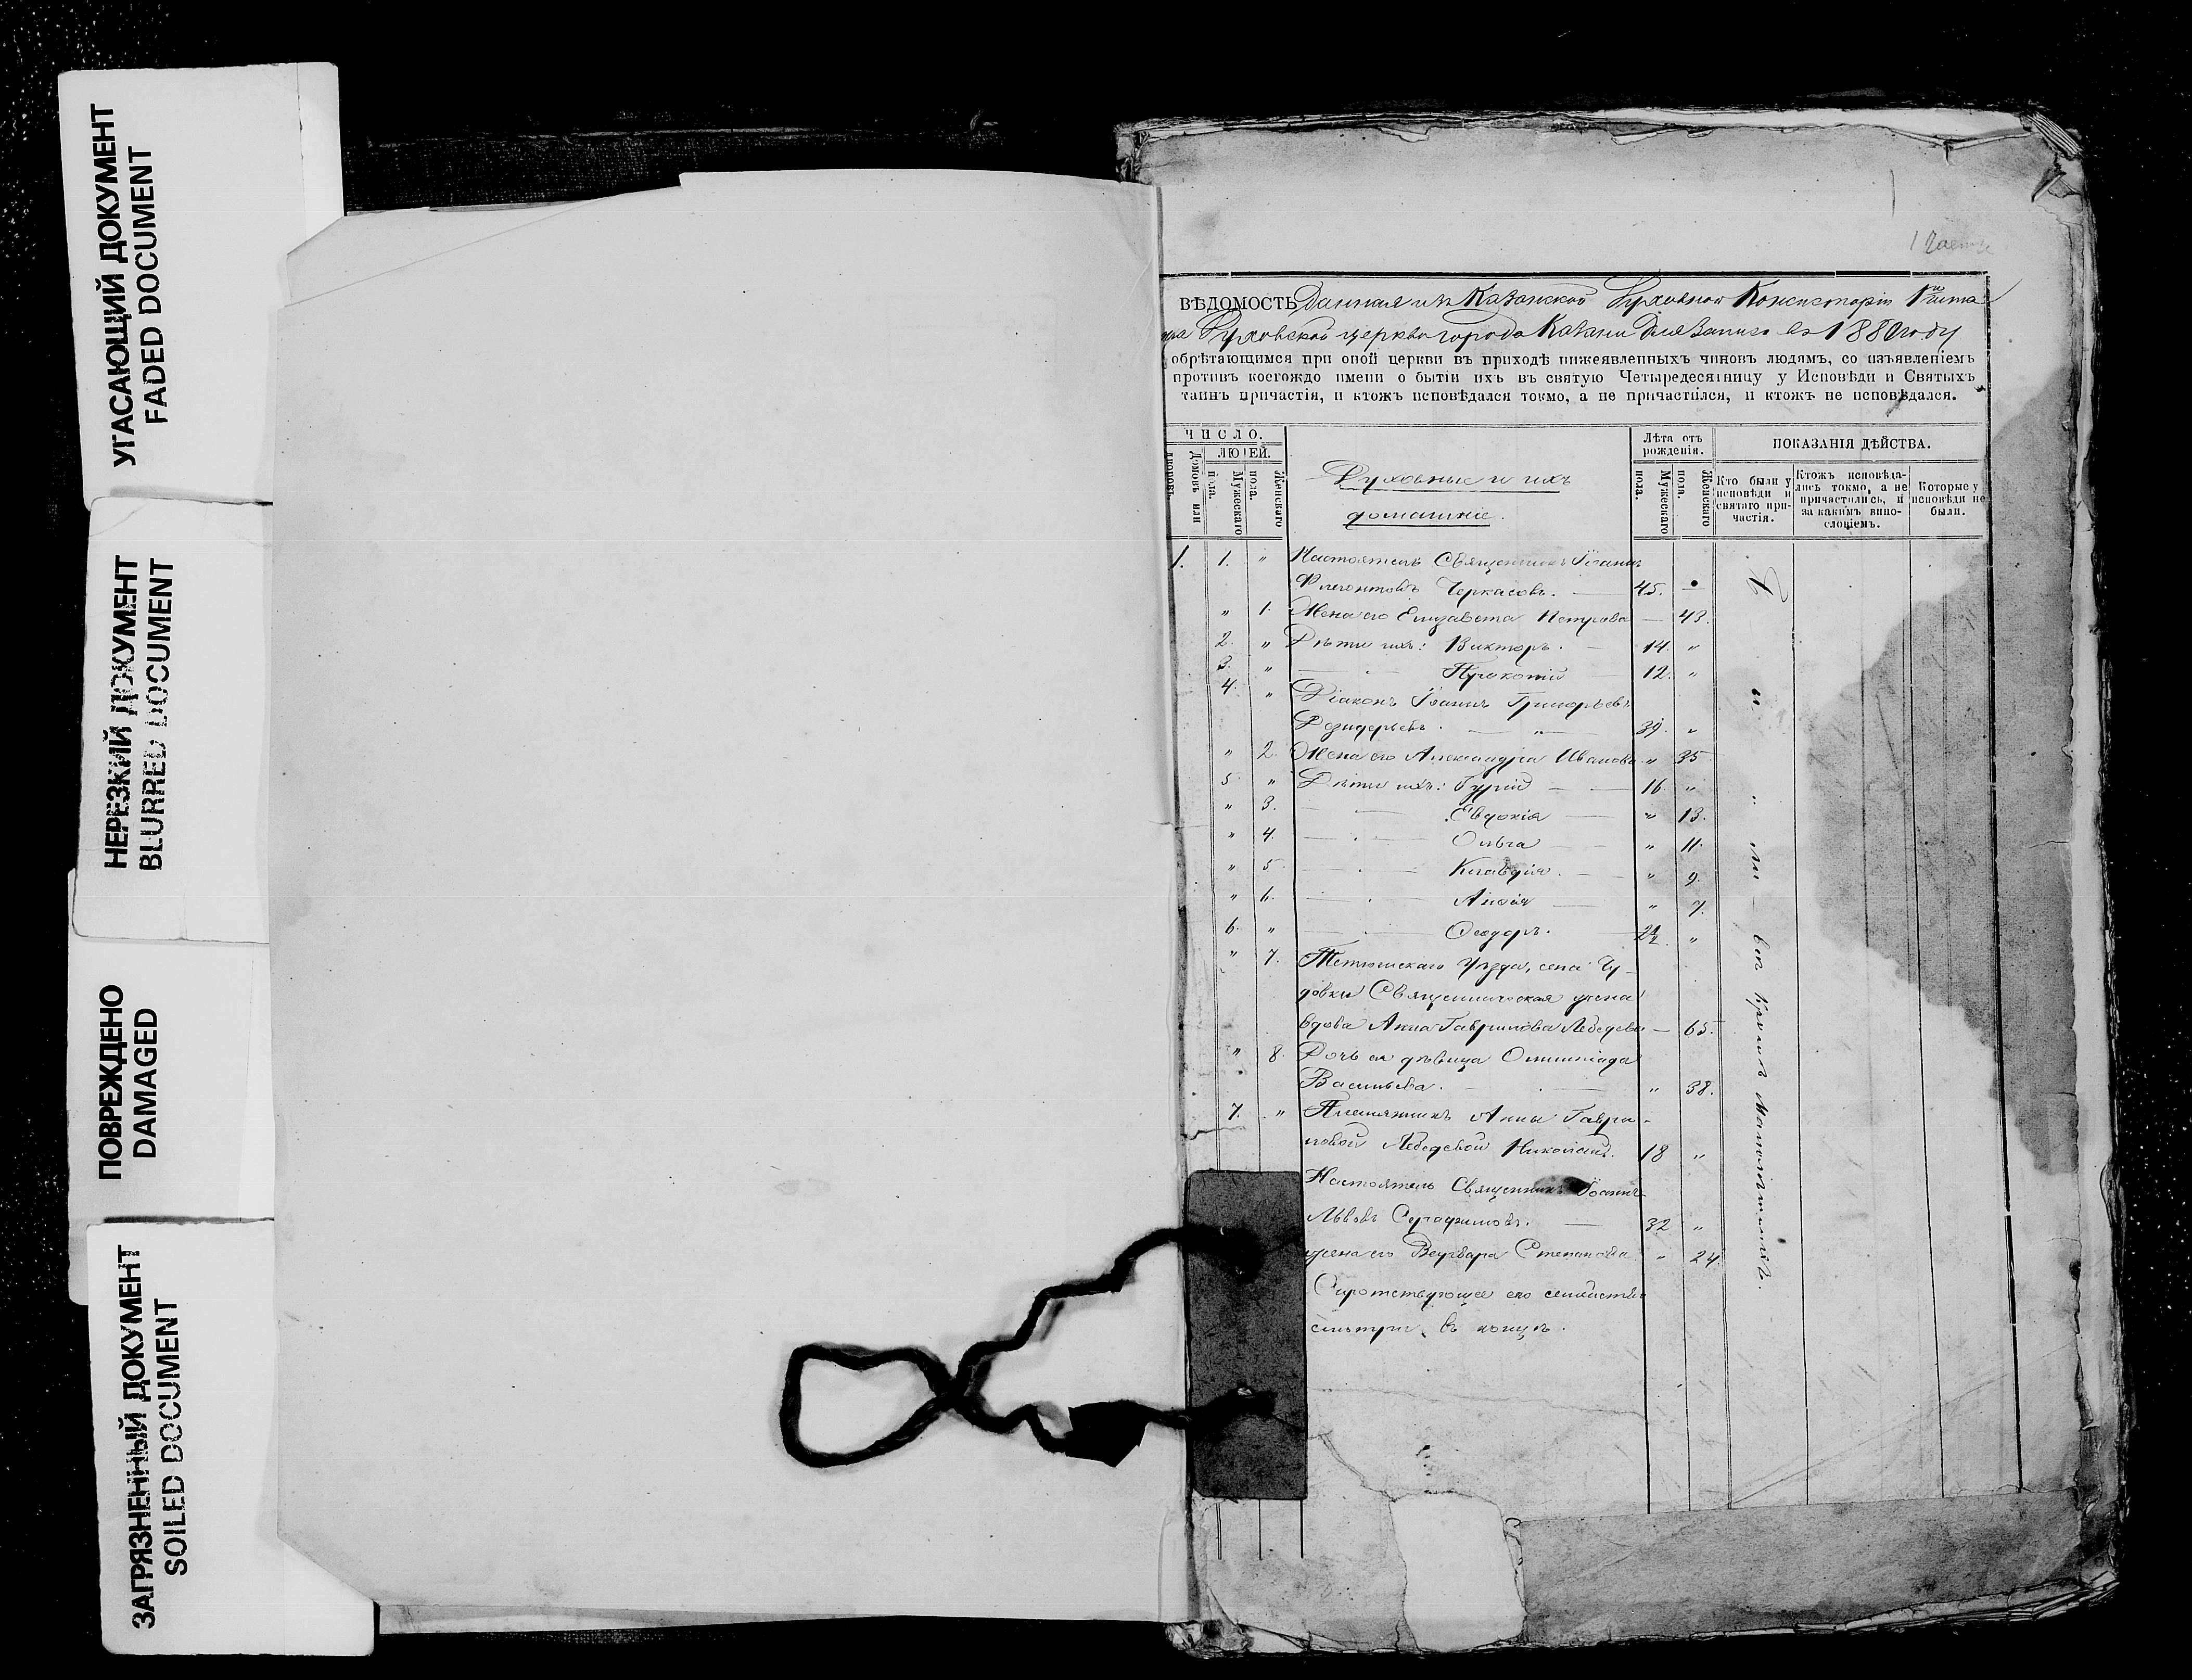 УГАСАЮЩИЙ ДОКУМЕНТ
FADED DOCUMENT
НЕРЕЗКИЙ ДОКУМЕНТ
BLURRED DOCUMENT
ПОВРЕЖДЕНО
DAMAGED
ЗАГРЯЗНЕННЫЙ ДОКУМЕНТ
SOILED DOCUMENT
ВѢДОМОСТЬ Данная изъ Казанской Духовной Консисторіи
Духовской церкви города Казани для записи въ 1880 году
обрѣтающимся при оной церкви въ приходѣ нижеявленныхъ чиновъ людямъ, со изъявленіемъ
противъ коегождо имени о бытіи ихъ въ святую Четыредесятницу у Исповѣди и Святыхъ
таинъ причастія, и ктожъ исповѣдался токмо, а не причастился, и ктожъ не исповѣдался.
ЧИСЛО.
ЛЮДЕЙ.
Домовъ или дворовъ.
Мужескаго пола.
Женскаго пола.
Духовные и ихъ
домашніе.
Лѣта отъ рожденія.
Мужескаго пола.
Женскаго пола.
ПОКАЗАНІЯ ДѢЙСТВА.
Кто были у исповѣди и святаго причастія.
Ктожъ исповѣдались токмо, а не причастились, и за какимъ винословіемъ.
Которые у исповѣди не были.
1. 1. " Настоятель Священникъ Іоаннъ
Флегонтовъ Черкасовъ. — 45. "
" 1. Жена его Елизавета Петрова — 43.
2. " Дѣти ихъ: Викторъ. — 14. "
3. " Прокопій 12. "
4. " Діаконъ Іоаннъ Григорьевъ
39. "
" 2. Жена его Александра Иванова " 35
5 " Дѣти ихъ: Гурій — 16. "
" 3. Евдокія " 13.
" 4. Ольга " 11.
" 5 Клавдія. " 9.
" 6. " 7.
6. " Ѳеодоръ. "
" 7. Тетюшскаго Уѣзда, села Чу-
довки Священническая жена
вдова Анна Гаврилова Лебедева — 65.
" 8. Дочь ея дѣвица Олимпіада
Васильева. " 38.
7. " Племянникъ Анны Гаври-
ловой Лебедевой Николай. 18 "
Настоятель Священникъ Іоаннъ
Львовъ Серафимовъ. — 32 "
жена его Варвара Степанова " 24
Сиротствующее его семейство
смотри въ концѣ.